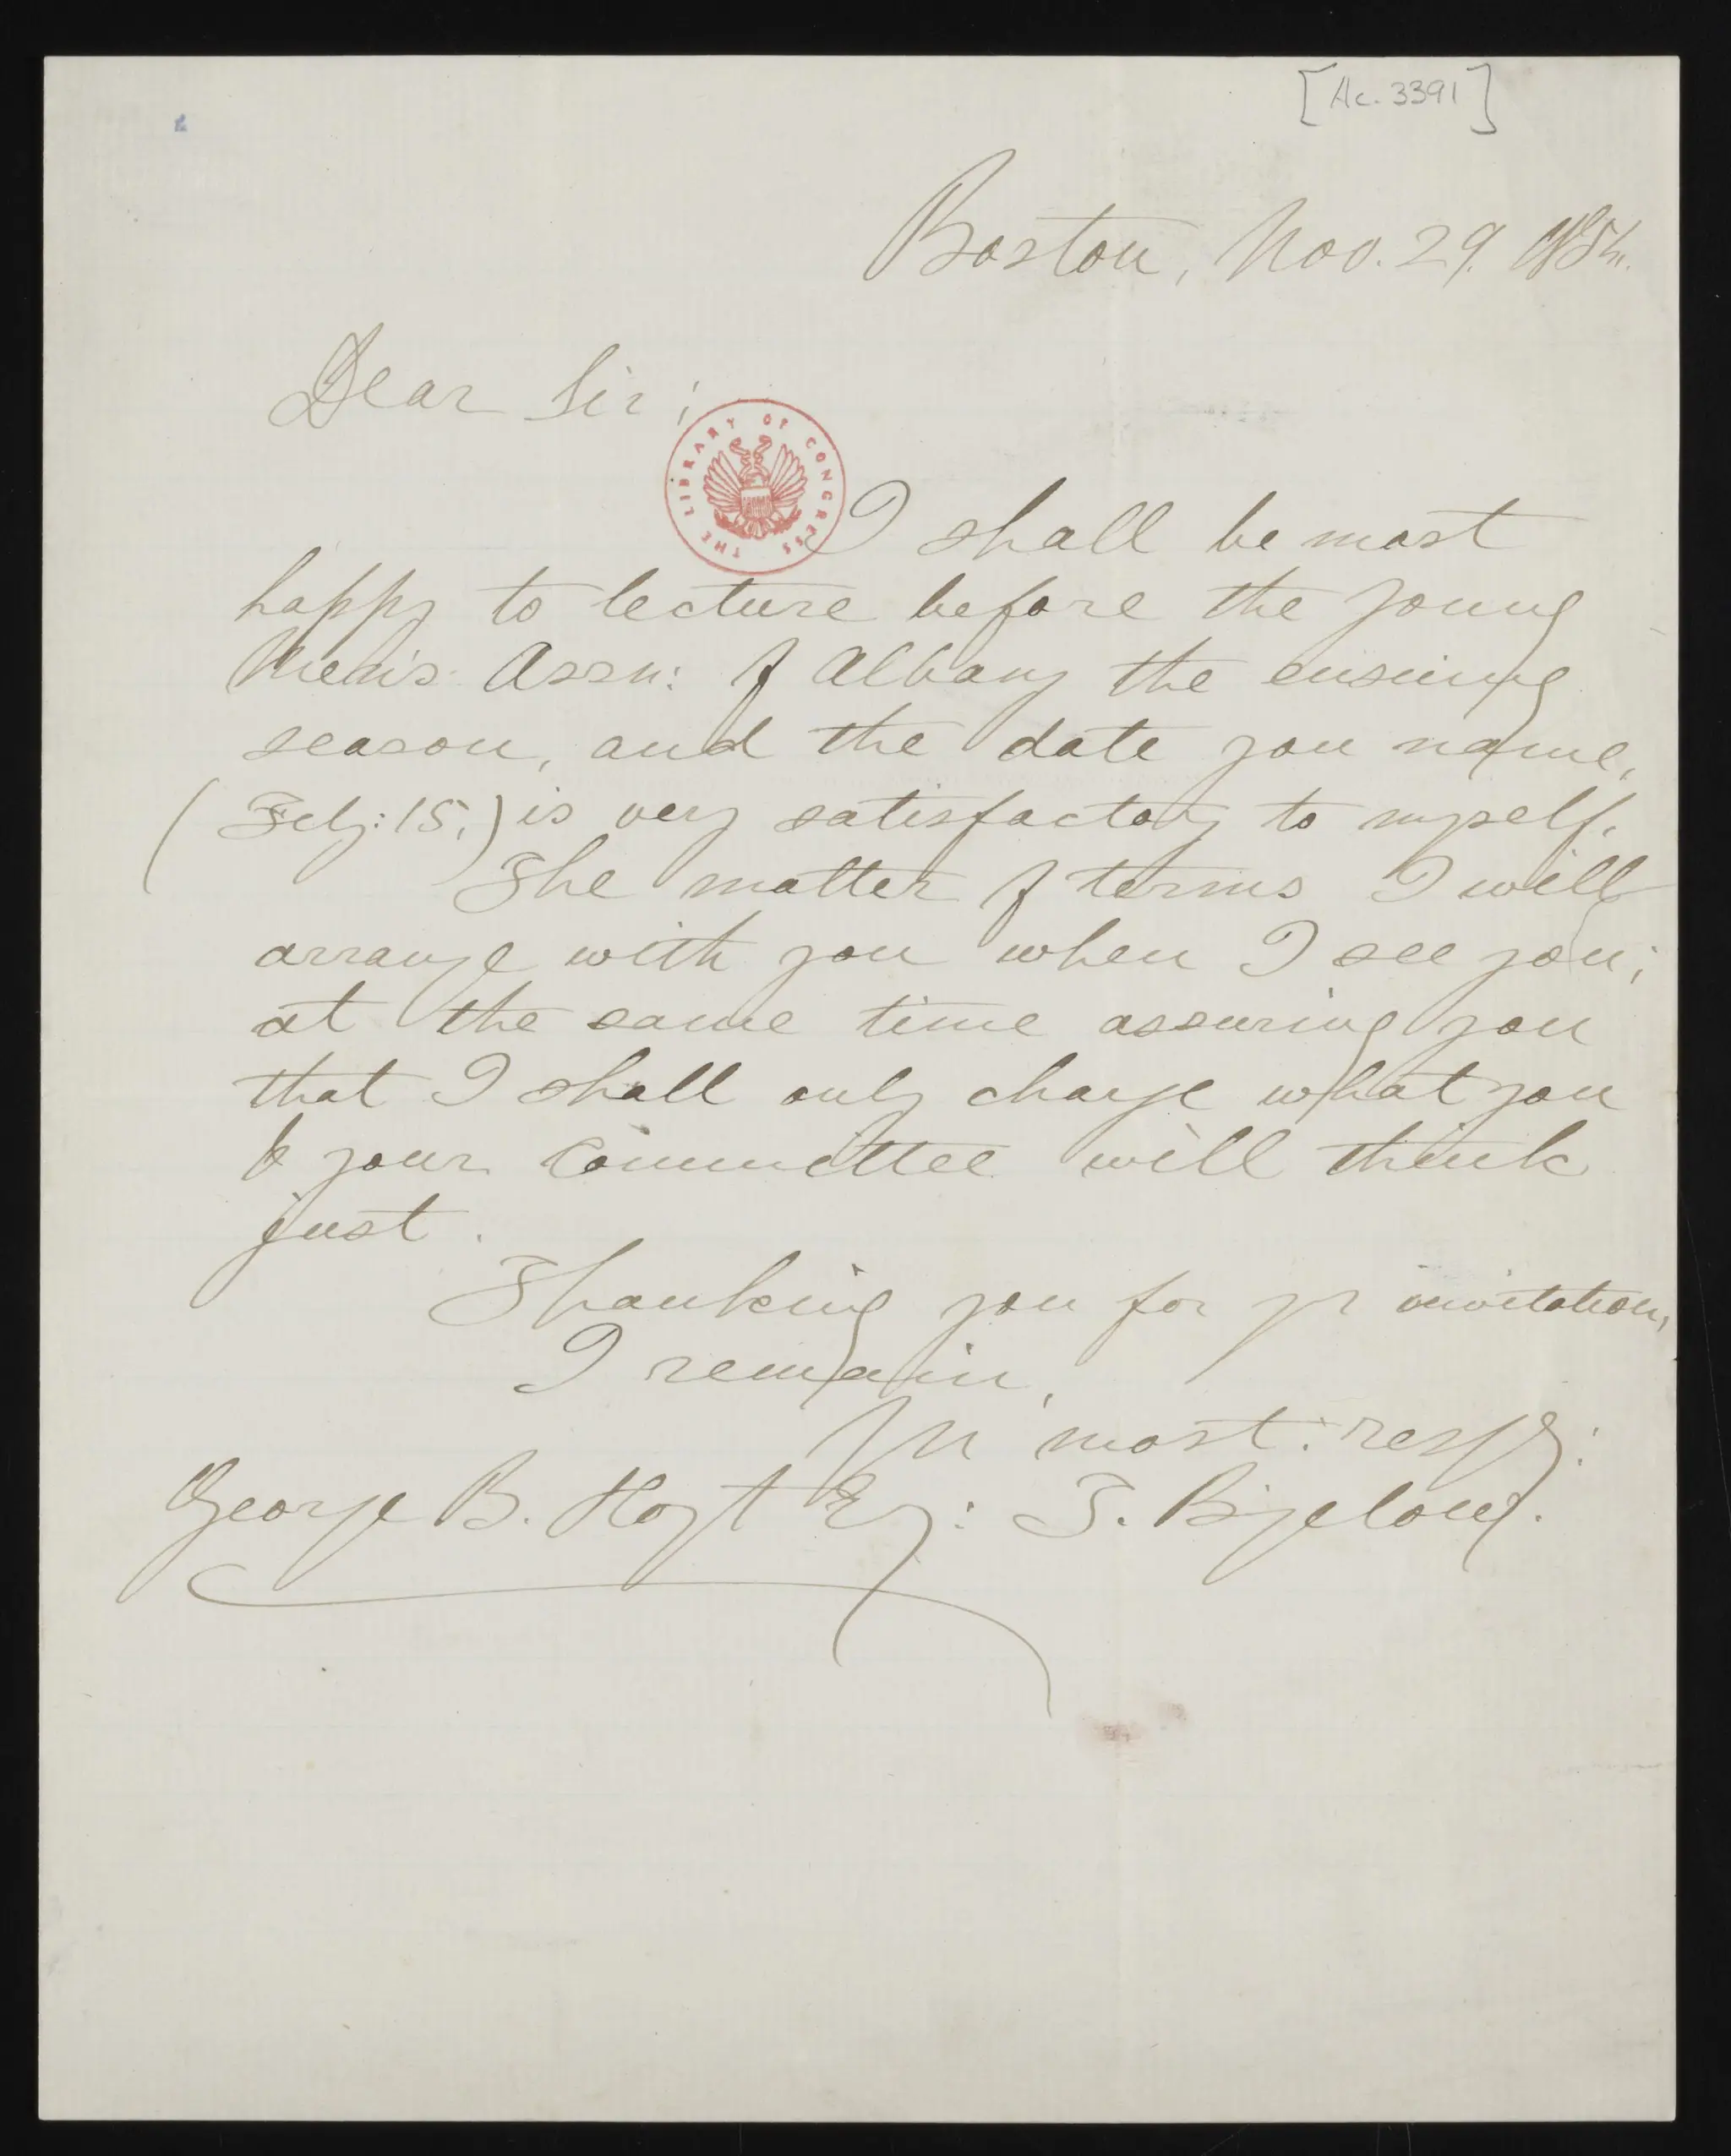 [Ac. 3391]
Boston, Nov. 29.
Dear Sir;
THE LIBRARY OF CONGRESS
I shall be most
happy to lecture before the young
Men's Assn: of Albany the ensuing
season, and the date you name,
(Feby: 15,) is very satisfactory to myself.
The matter of terms I will
arrange with you when I see you;
at the same time assuring you
that I shall only charge what you
& your committee will think
just.
Thanking you for yr invitation,
I remain,
Yr most: respy:
George B. Hoyt Esq: T. Bigelow.